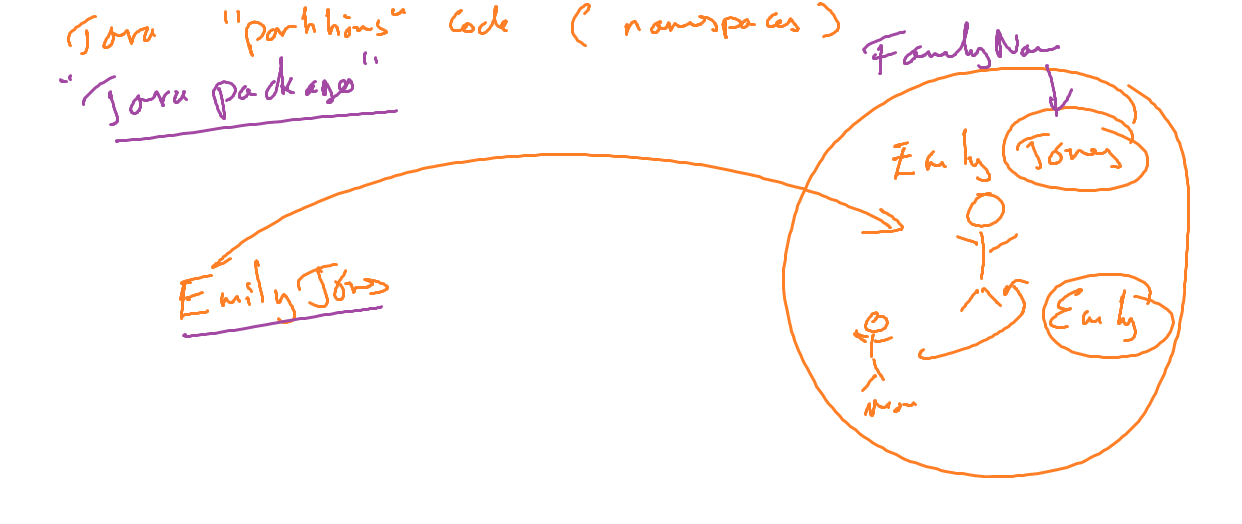 Java "partitions" code ( namespaces )
"Java packages"
FamilyNam
Emily Jones
Emily Jones
Emily
Mum